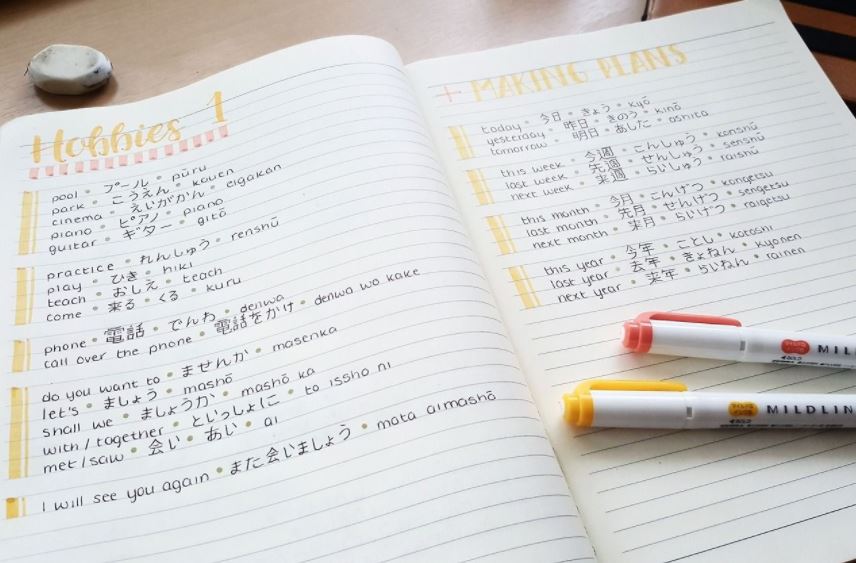 Hobbies 1
pool • プール • pūru
park • こうえん • kouen
cinema • えいがかん • eigakan
piano • ピアノ • piano
guitar • ギター • gitā
practice • れんしゅう • renshū
play • ひき • hiki
teach • おしえ • teach
come • 来る • くる • kuru
phone • 電話 • でんわ • denwa
call over the phone • 電話をかけ • denwa wo kake
do you want to • ませんか • masenka
let's • ましょう • mashō
shall we • ましょうか • mashō ka
with/together • といっしょに • to issho ni
met/saw • 会い • あい • ai
I will see you again • また会いましょう • mata aimashō
+ MAKING PLANS
today • 今日 • きょう • kyō
yesterday • 昨日 • きのう • kinō
tomorrow • 明日 • あした • ashita
this week • 今週 • こんしゅう • konshū
last week • 先週 • せんしゅう • senshū
next week • 来週 • らいしゅう • raishū
this month • 今月 • こんげつ • kongetsu
last month • 先月 • せんげつ • sengetsu
next month • 来月 • らいげつ • raigetsu
this year • 今年 • ことし • kotoshi
last year • 去年 • きょねん • kyonen
next year • 来年 • らいねん • rainen
MILD
MILDLIN